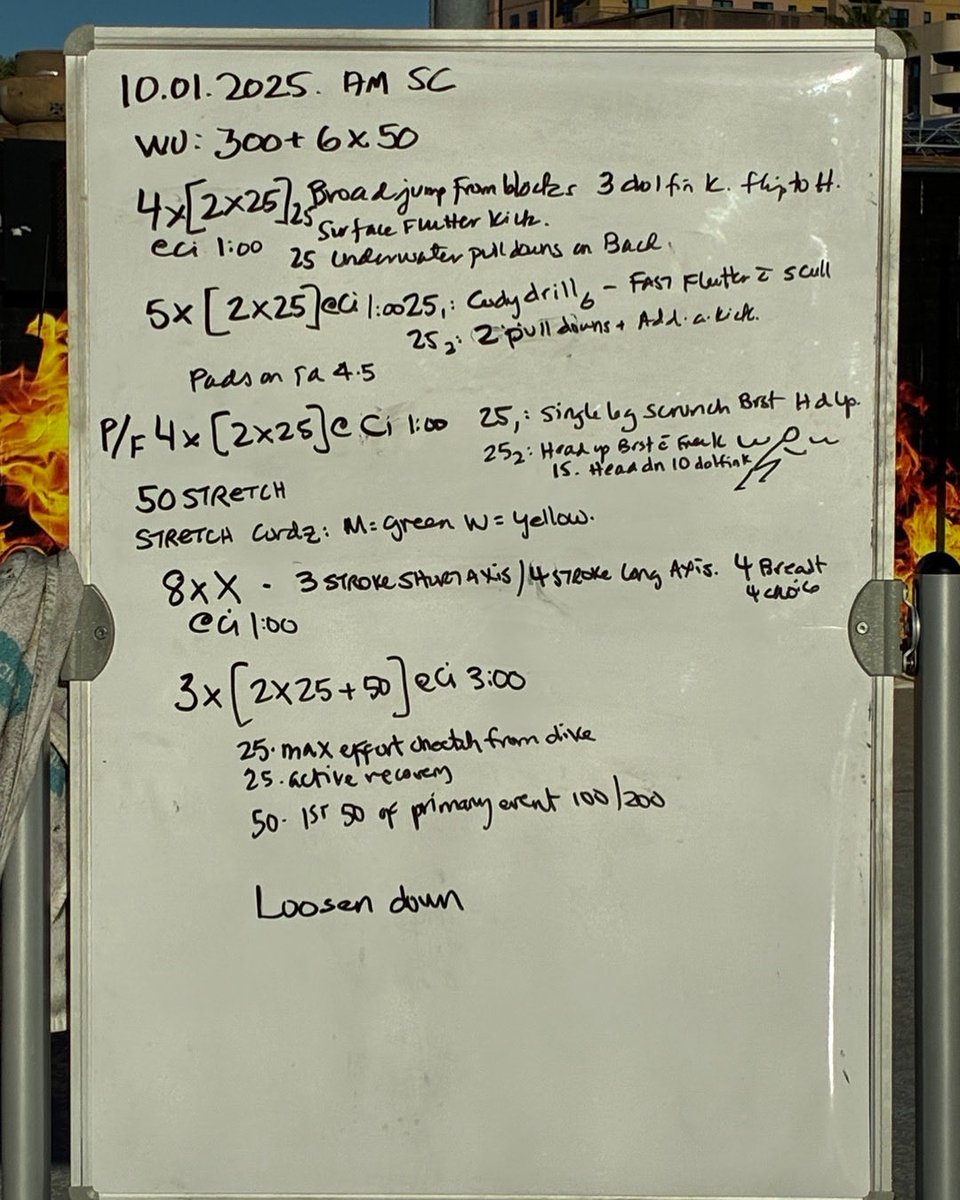 10.01.2025. AM SC
WU: 300+ 6x50
4x[2x25] 25 Broad jump From blocks 3 dolfin K. flip to H.
Surface Flutter Kick.
eci 1:00 25 Underwater pull downs on Back.
5x [2x25]@Ci 1:00 25₁: drill 6 - FAST Flutter c̄ scull
25₂: 2 pull downs + Add.a.kick.
Pads on 4.5
P/F 4x [2x25]@ Ci 1:00 25₁: single leg scrunch Brst Hd up.
25₂: Head up Brst c̄
15. Head dn 10 dolfink
50 STRETCH
STRETCH Cordz: M=green W=yellow.
8xX - 3 STROKE SHORT AXIS/4 STROKE Long AXIS. 4 Breast
4 choice
@Ci 1:00
3x[2x25+50]@Ci 3:00
25. max effort cheetah from dive
25. active recovery
50. 1st 50 of primary event 100/200
Loosen down